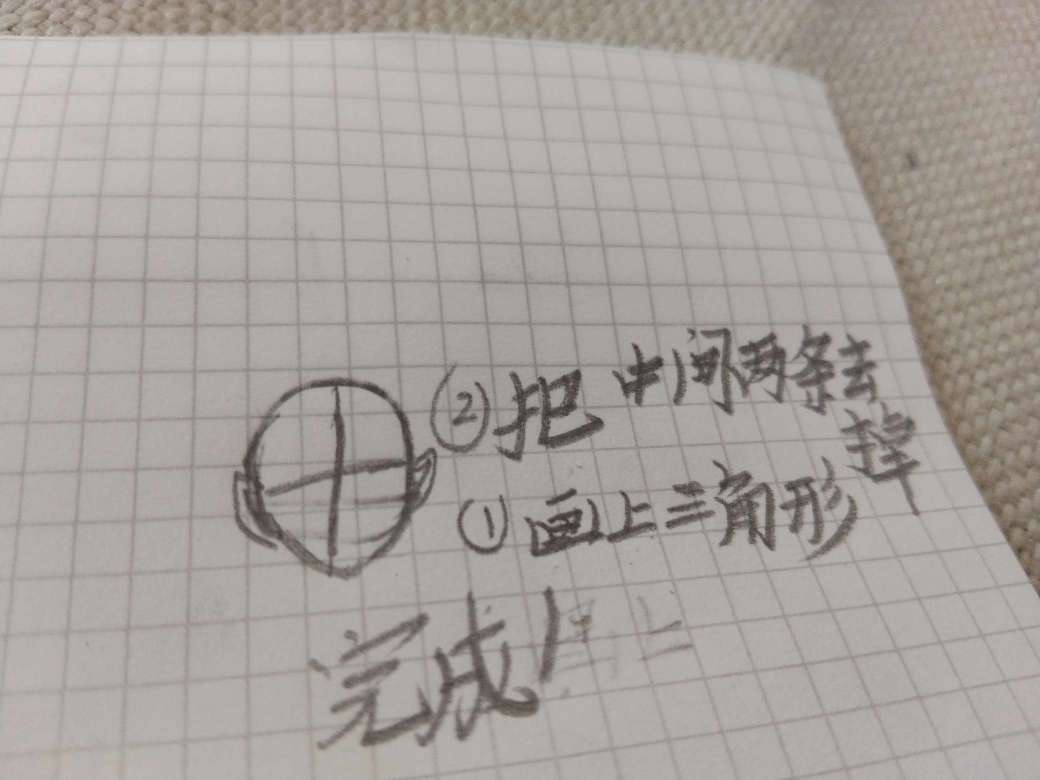 ②把中间两条去
掉
①画上三角形
完成!